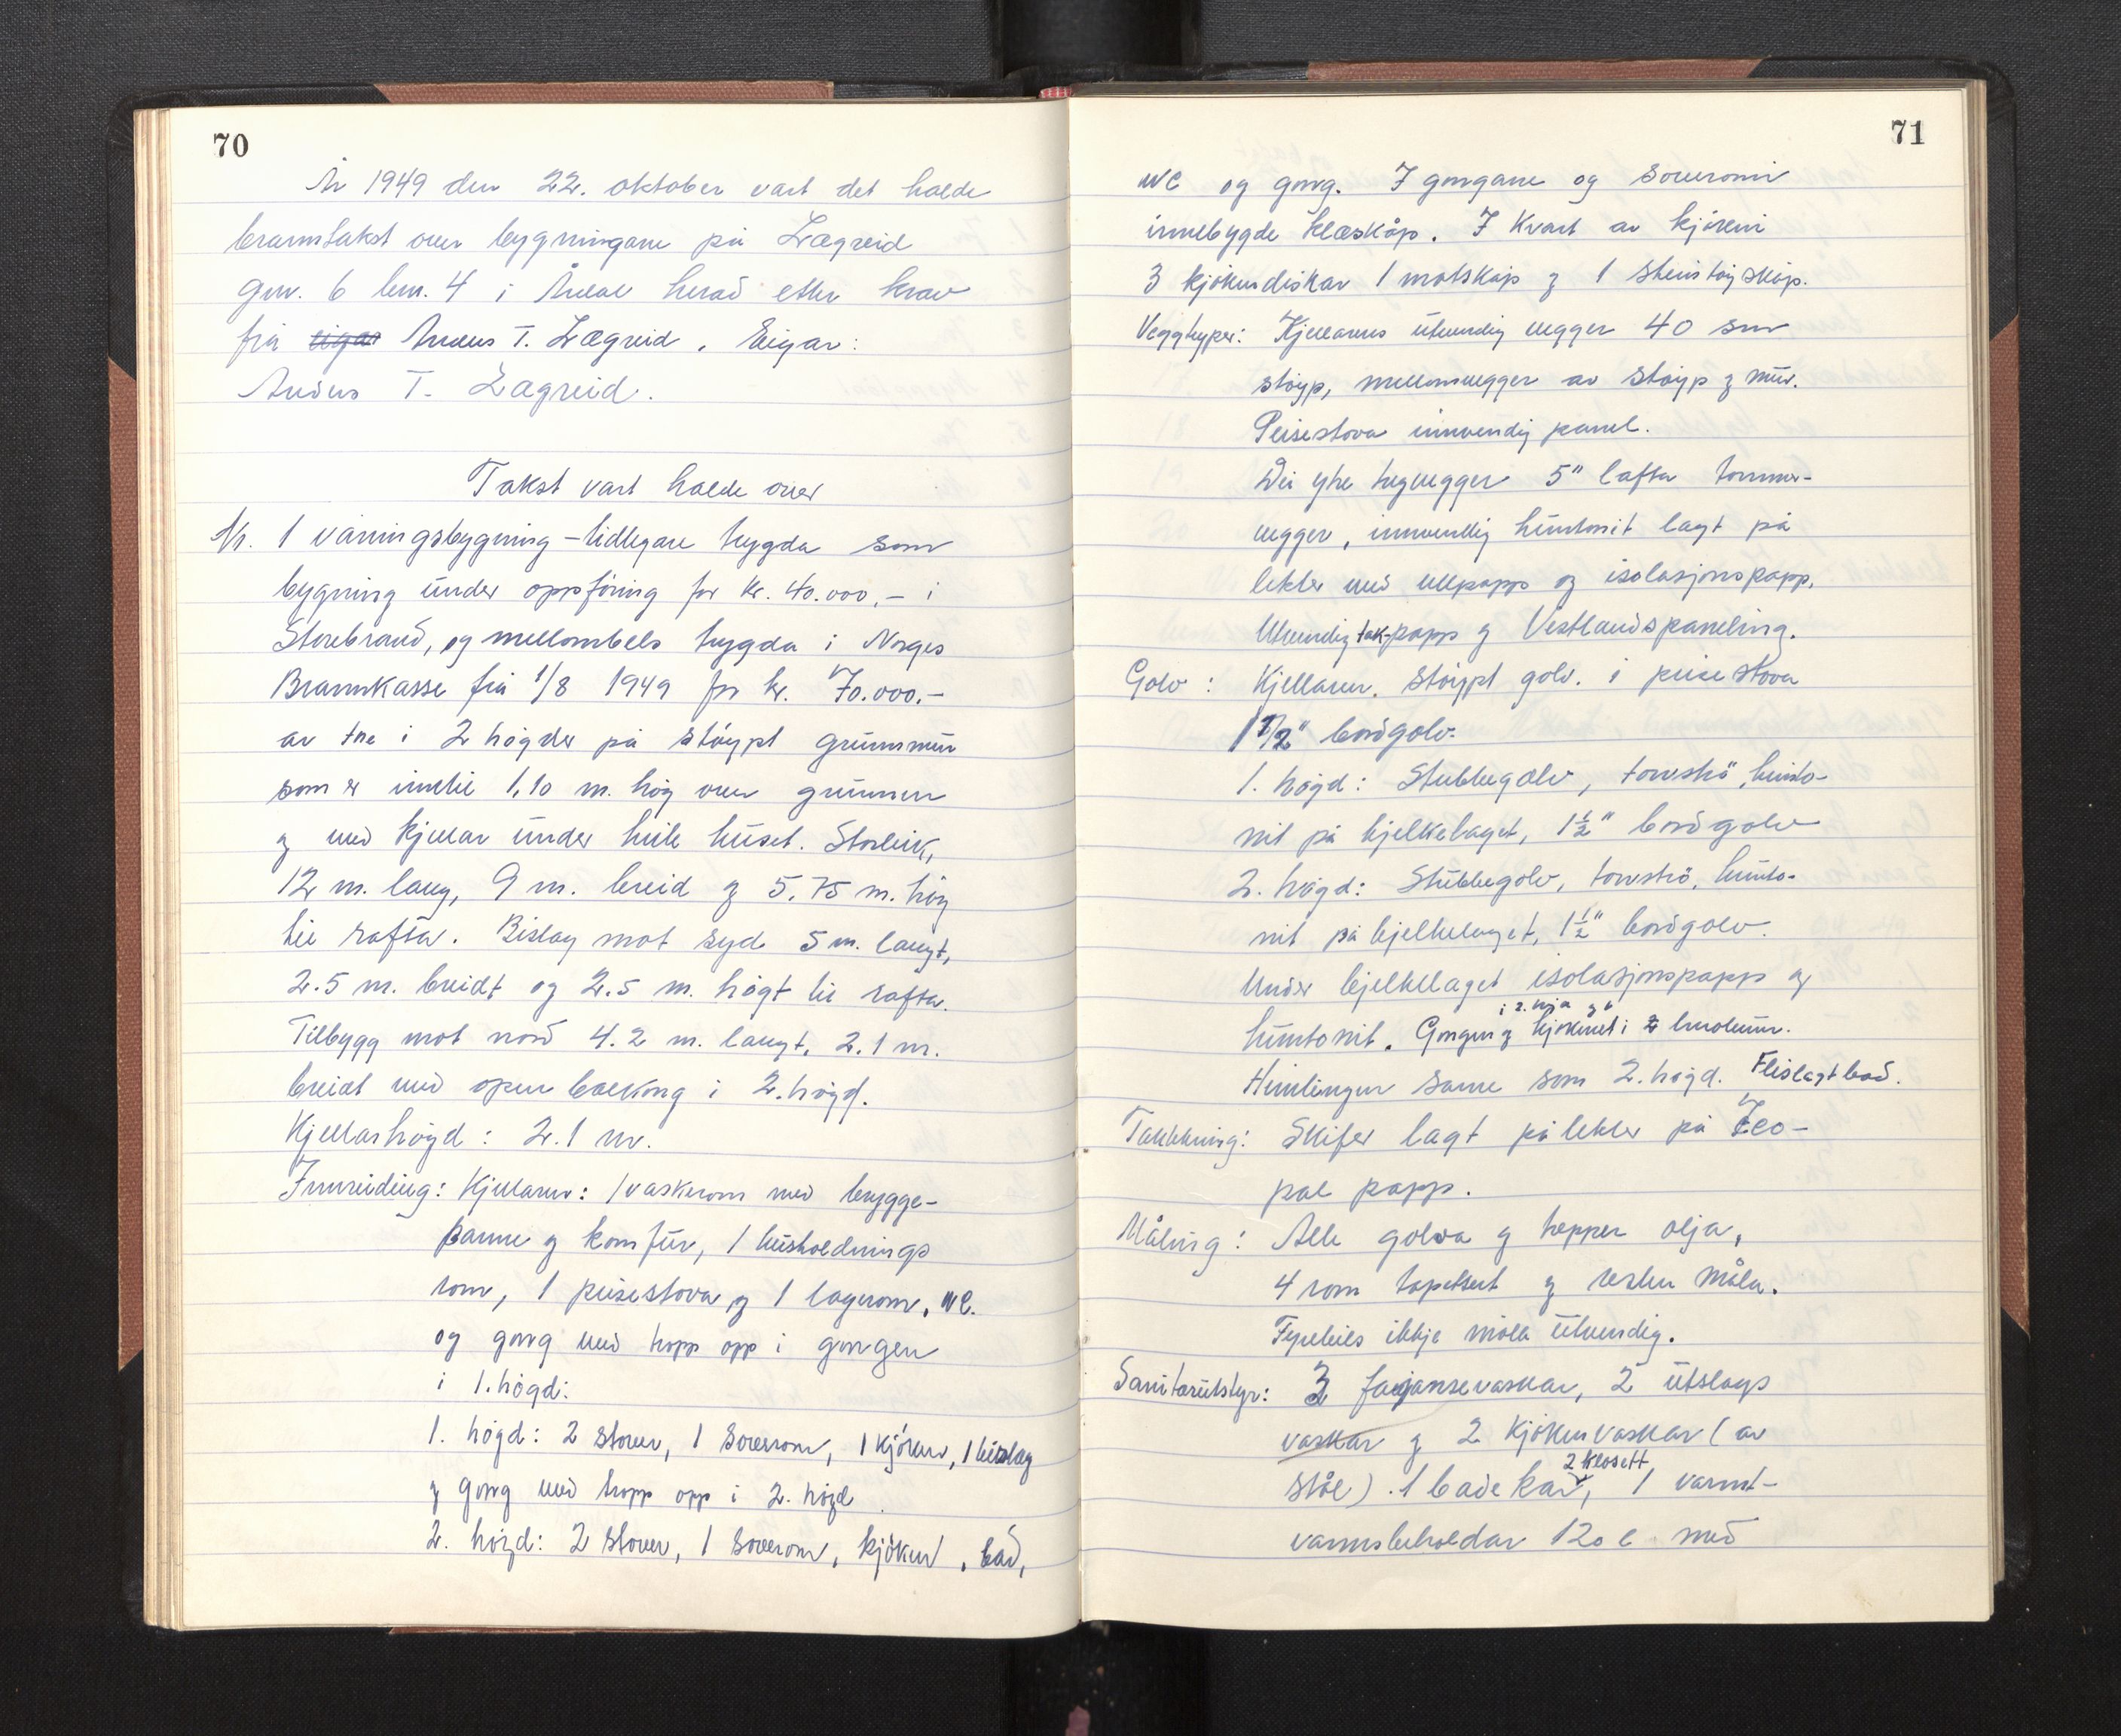 70
År 1949 den 22. oktober vart det halde
branntakst over bygningane på Lægreid
gnr. 6 bnr. 4 i Årdal herad etter krav
frå eigar Anders T. Lægreid. Eigar:
Anders T. Lægreid.
Takst vart halde over
Nr. 1 våningsbygning – tidlegare trygda som
bygning under oppföring for kr. 40.000.– i
Storebrand, og mellombels trygda i Norges
Brannkasse frå 1/8 1949 for kr. 70.000.–
av tre i 2 högder på stöypt grunnmur
som er inntil 1,10 m. høg over grunnen
og med kjellar under heile huset. Storleik,
12 m. lang, 9 m. breid og 5.75 m. høg
til rafta. Bislag mot syd 5 m. langt,
2.5 m. breidt og 2.5 m. högt til rafta.
Tilbygg mot nord 4.2 m. langt, 2.1 m.
breidt med open balkong i 2. högd.
Kjellarhögd: 2.1 m.
Innreiding: Kjellaren: 1 vaskerom med brygge-
panne og komfür, 1 husholdnings
rom, 1 peisestova og 1 lagerom, WC.
og gang med tropp opp i gangen
i 1. högd:
1. högd: 2 stover, 1 soverom, 1 kjöken, 1 bislag
og gang med tropp opp i 2. högd
2. högd: 2 stover, 1 soverom, kjöken, bad,
71
WC og gang. I gangane og soveromi
innebygde klæskåp. I kvart av kjökeni
3 kjökendiskar 1 matskåp og 1 steintöyskåp.
Veggtyper: Kjellarens utvendig vegger 40 sm
støyp, mellomvegger av støyp og mur.
Peisestova innvendig panel.
Dei ytre tregvegger 5" lafta tømmer-
vegger, innvendig huntonit lagt på
lekter med ullpapp og isolasjonspapp.
Utvendig tak-papp og Vestlandspaneling.
Golv: Kjellaren. Støypt golv. i peisestova
1 1/2" bordgolv.
1. högd: Stubbegolv, torvströ, hunto-
nit på bjelkelaget, 1 1/2" bordgolv
2. högd: Stubbegolv, torvströ, hunto-
nit på bjelkelaget, 1 1/2" bordgolv.
Under bjelkelaget isolasjonspapp og
huntonit. Gangen og kjökenet i 2 linoleum.
Himlingen same som 2. högd. Flislagt bad.
Taktekning: Skifer lagt på lekter på Ico-
pal papp.
Måling: Alle golva og trepper olja,
4 rom tapetsert og resten måla.
Fyrebils ikkje måla utvendig.
Sanitærutstyr: 3 fajansevaskar, 2 utslags
vaskar og 2 kjökenvaskar (av
2 klosett
stål). 1 badekar, 1 varmt-
vannsbeholdar 120 l. med